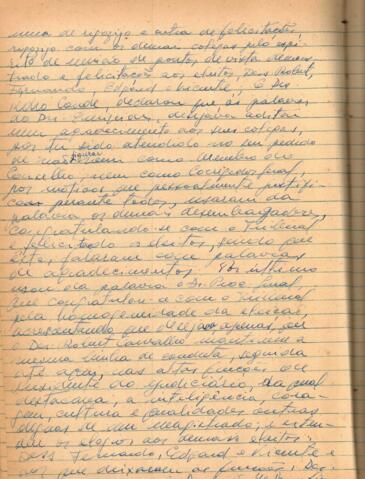 uma de regozijo e outra de felicitações,
regozijo com os demais colegas pelo espí-
rito de união de pontos de vista demons-
trado e felicitações aos eleitos, Des. Robert,
Fernando, Edgard e Vicente; O Des.
declarou que as palavras
do Des. desejava aditar
um agradecimento aos seus colegas,
por ter sido atendido no seu pedido
de não figurar nem como Membro do
Conselho, nem como Corregedor Geral,
por motivos que pessoalmente justifi-
cou perante todos, usaram da
palavra, os demais desembargadores,
congratulando-se com o Tribunal
e felicitando os eleitos, sendo que
estes, falaram com palavras
de agradecimentos. Por último
usou da palavra o Dr. Proc. Geral,
que congratulou-se com o Tribunal
pela homogeneidade da eleição,
acrescentando que desejava, apenas, que
o Des. Robert Carvalho mantivesse a
mesma linha de conduta, seguida
até aqui, nas altas funções de
Presidente do Judiciário, da qual
destacava, a inteligência, cora-
gem, cultura e qualidades outras
dignas de um magistrado; e esten-
deu os elogios aos demais eleitos:
Des. Fernando, Edgard e Vicente e
aos que deixaram as funções, Des.